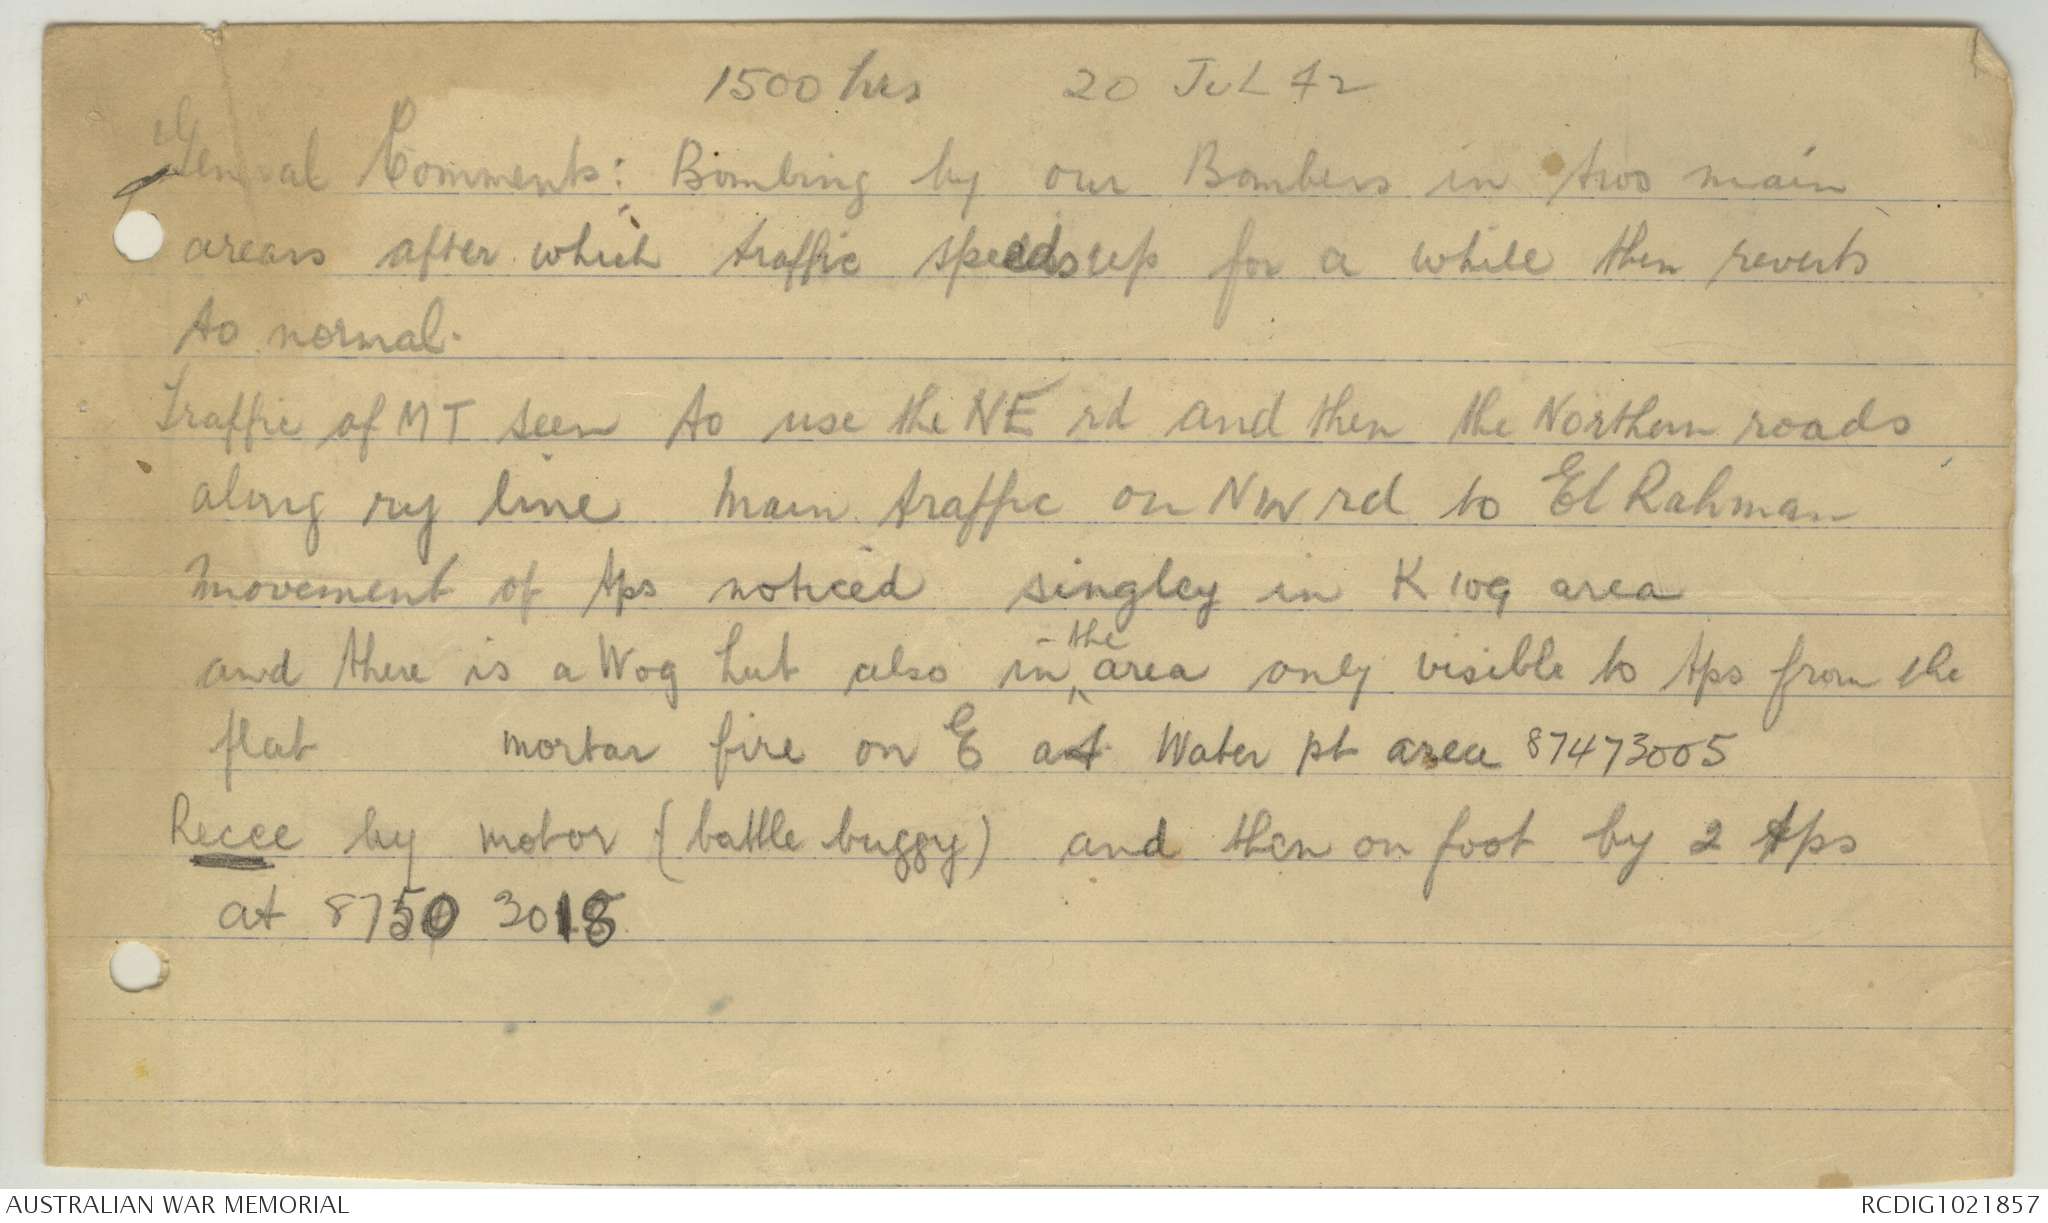 1500 hrs 20 JUL 42
General Comments: Bombing by our Bombers in two main
areas after which traffic speeds up for a while then reverts
to normal.
Traffic of MT seen to use the NE rd and then the Northern roads
along rly line Main traffic on NW rd to El Rahman
Movement of tps noticed singley in K 109 area
and there is a Wog hut also in the area only visible to tps from the
flat mortar fire on E at Water pt area 87473005
Recce by motor (battle buggy) and then on foot by 2 tps
at 8750 3018
AUSTRALIAN WAR MEMORIAL RCDIG1021857